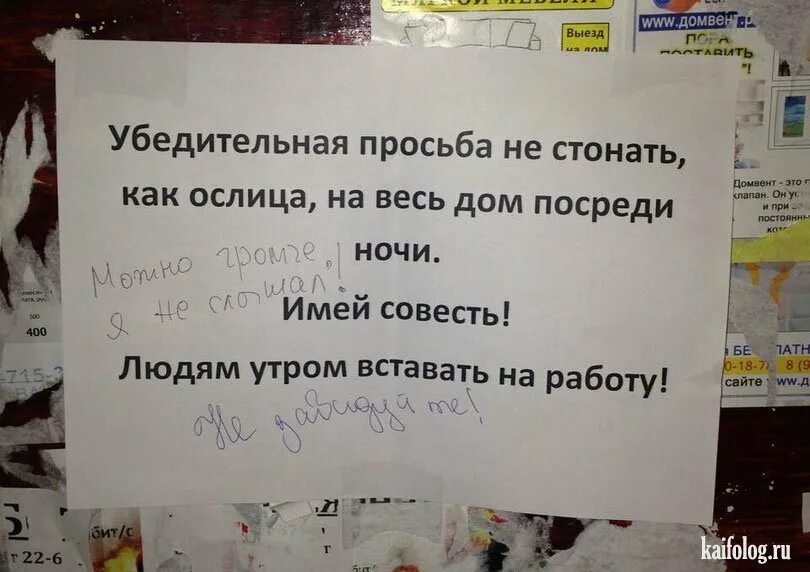 МЯГКОЙ МЕБЕЛИ
Выезд
на дом
www.домвент.р
ПОРА
ПОСТАВИТЬ
Убедительная просьба не стонать,
как ослица, на весь дом посреди
ночи.
Можно громче,
я не слышал!
Имей совесть!
Людям утром вставать на работу!
Не завидуйте!
Домвент - это г
клапан. Он ус
и при
постоянны
500
400
715-3
БЕ ПЛАТН
0-18-7 8 (9
сайте www.д
быт/с
г 22-6
kaifolog.ru